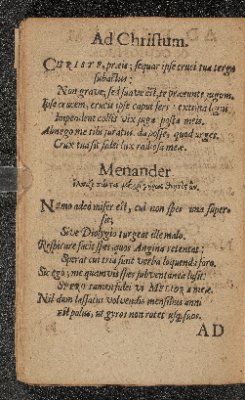 Ad Christum.
CHRISTE, præis; sequar ipse cruci tua terga
subactus;
Non grave, sed suave est, te præeunte jugum.
Ipse crucem, cruci ipse caput fers: extima ligni
Impendent collis vix juga posta meis.
Abnego me tibi juratus da posse, quod urges.
Crux tua sit soli lux radiosa meæ.
Menander
Nemo adeò miser est, cui non spes una super-
sit;
Sive Diolygio turgeat ille malo.
Respirare facit spes, quos Angina retentat;
Sperat cui tria sunt verba loquenda foro.
Sic ego; me quamvis spes subventanea lusit:
SPERO tamen fulci vi MELIORA meæ.
Nil dum lassatus volvendis mensibus anni
Est polus, ut gyros non rotet
AD